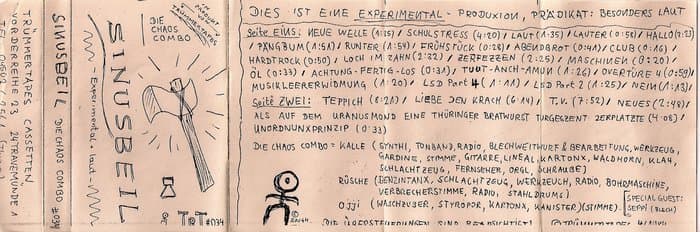 TRÜMMERTAPES CASSETTEN
VORDERREIHE 23
24 TRAVEMÜNDE 1
SINUSBEIL DIE CHAOS COMBO #034
DIE CHAOS COMBO
SINUSBEIL
~ Experimental + laut ~
TRT#034
DIES IST EINE EXPERIMENTAL - PRODUXION, PRÄDIKAT: BESONDERS LAUT
Seite EINS: NEUE WELLE (1:25) / SCHULSTRESS (4:20) / LAUT (1:35) / LAUTER (0:58) / HALLO (2:23)
/ PÄNGBUM (1:51) / RUNTER (1:59) / FRÜHSTÜCK (0:28) / ABENDBROT (0:41) / CLUB (0:16) /
HARDTROCK (0:50) / LOCH IM ZAHN (2:22) / ZERFEZZEN (2:25) / MASCHINEN (0:20) /
ÖL (0:33) / ACHTUNG-FERTIG-LOS (0:31) / TUUT-ANCH-AMUN (1:26) / OVERTÜRE 4 (0:59) /
MUSIKLEERERWIDMUNG (1:20) / LSD Part 4 (1:11) / LSD Part 2 (1:25) / NEIN (1:13)
Seite ZWEI: TEPPICH (6:21) / LIEBE DEN KRACH (6:14) / T.V. (7:52) / NEUES (2:48) /
ALS AUF DEM URANUSMOND EINE THÜRINGER BRATWURST TURGESZENT ZERPLATZTE (4:08) /
UNORDNUNXPRINZIP (0:33)
DIE CHAOS COMBO = KALLE (SYNTHI, TONBAND, RADIO, BLECHWEITWURF & BEARBEITUNG, WERKZEUG,
GARDINE, STIMME, GITARRE, LINEAL, KARTONX, WALDHORN, KLAY,
SCHLACHTZEUG, FERNSEHER, ORGL, SCHRAUBE)
RÜSCHE (BENZINTANX, SCHLACHTZEUG, WERKZEUCH, RADIO, BOHRMASCHINE,
VERBRECHERSTIMME, RADIO, STAHLDRUMS)
Ojji (WASCHZUBER, STYROPOR, KARTONX, KANISTER) (STIMME).
SPECIAL GUEST:
SEPPI (BLECH)